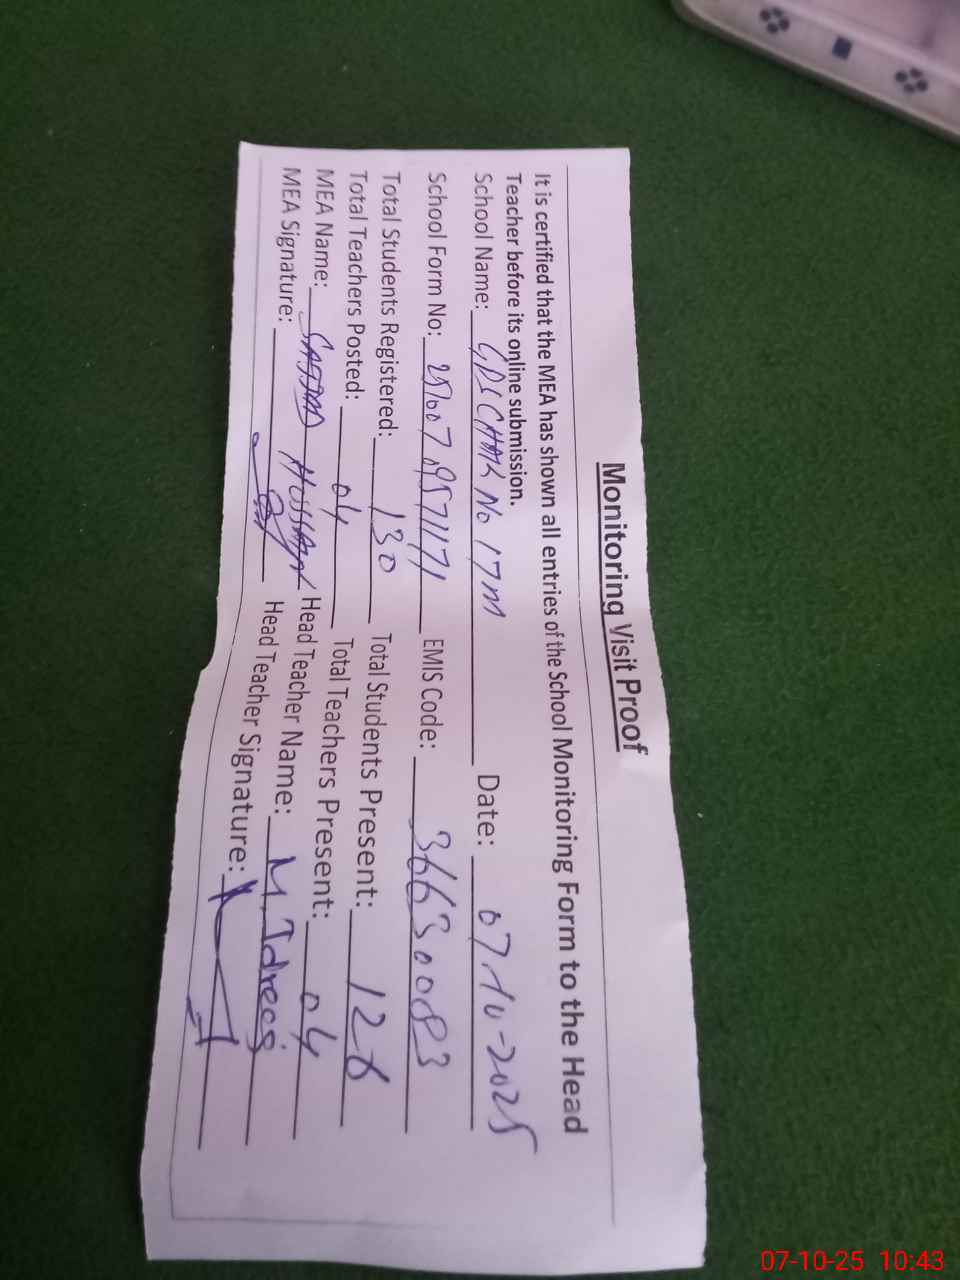 Monitoring Visit Proof
It is certified that the MEA has shown all entries of the School Monitoring Form to the Head
Teacher before its online submission.
School Name: GPS CHAK No 17M Date: 07-10-2025
School Form No: EMIS Code: 36630083
Total Students Registered: 130 Total Students Present: 126
Total Teachers Posted: 04 Total Teachers Present: 04
MEA Name: SAJJAD HUSSAIN Head Teacher Name: M. Idrees
MEA Signature: Head Teacher Signature:
07-10-25 10:43